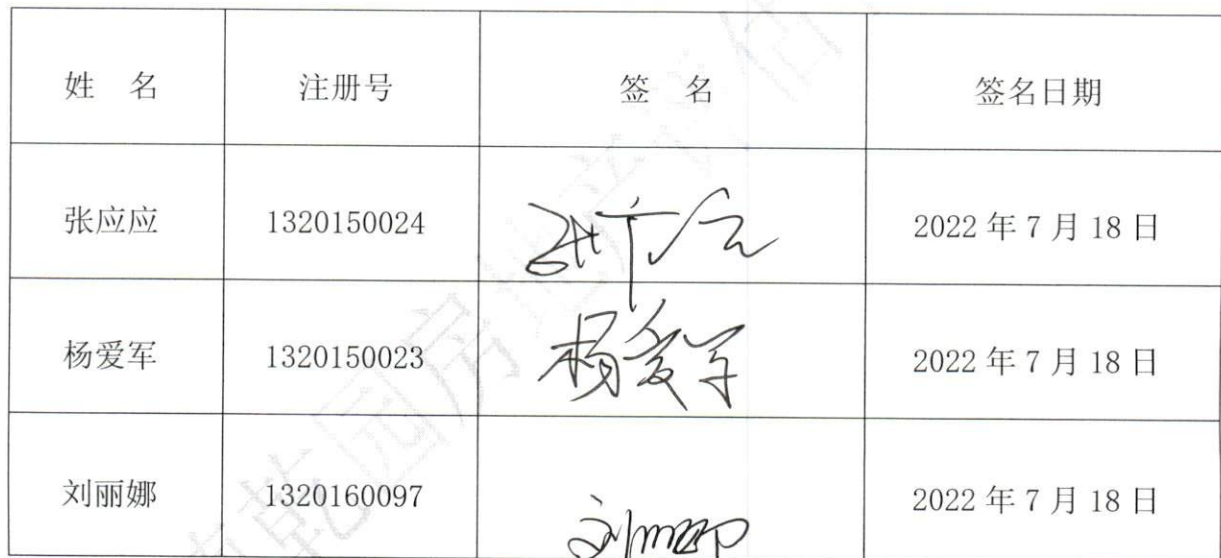 姓 名 注册号 签 名 签名日期
张应应 1320150024 张应应 2022 年 7 月 18 日
杨爱军 1320150023 杨爱军 2022 年 7 月 18 日
刘丽娜 1320160097 刘丽娜 2022 年 7 月 18 日
乾园房地产评估